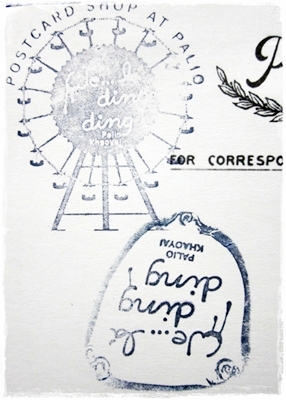 POSTCARD SHOP AT PALIO
We... la
ding
ding!
Palio
Khaoyai
P
FOR CORRESPO
We... la
ding
ding!
PALIO
KHAOYAI